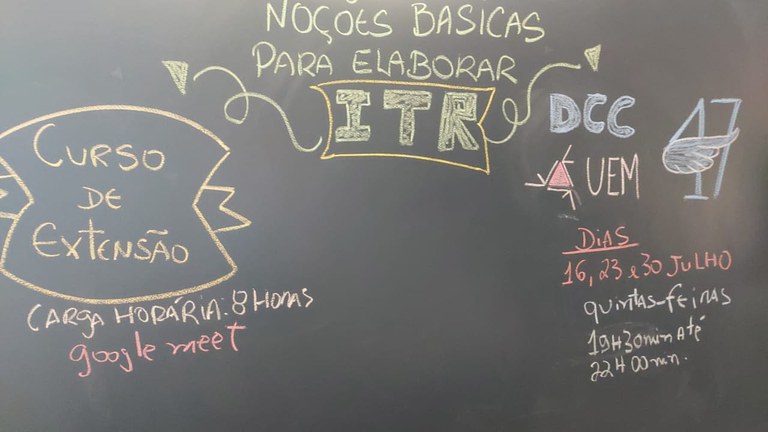 NOÇÕES BASICAS
PARA ELABORAR
ITR
CURSO
DE
EXTENSÃO
CARGA HORÁRIA: 8 HORAS
google meet
DCC
UEM
17
DIAS
16, 23 e 30 JULHO
quintas-feiras
19H30min Até
22H00min.